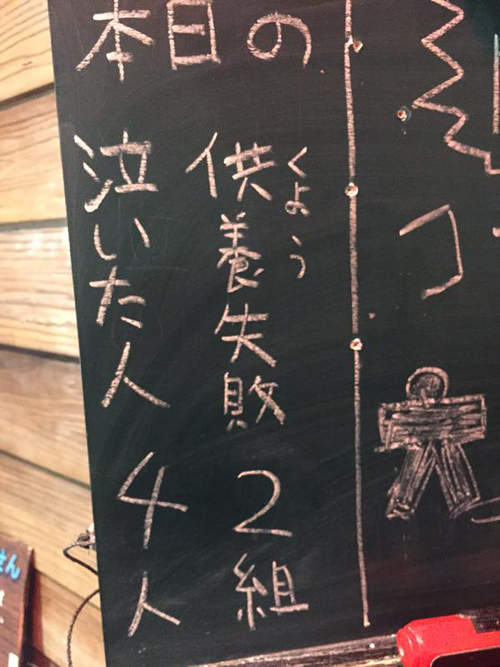 本日の
くよう
供養失敗 2組
泣いた人 4人
コ
さん